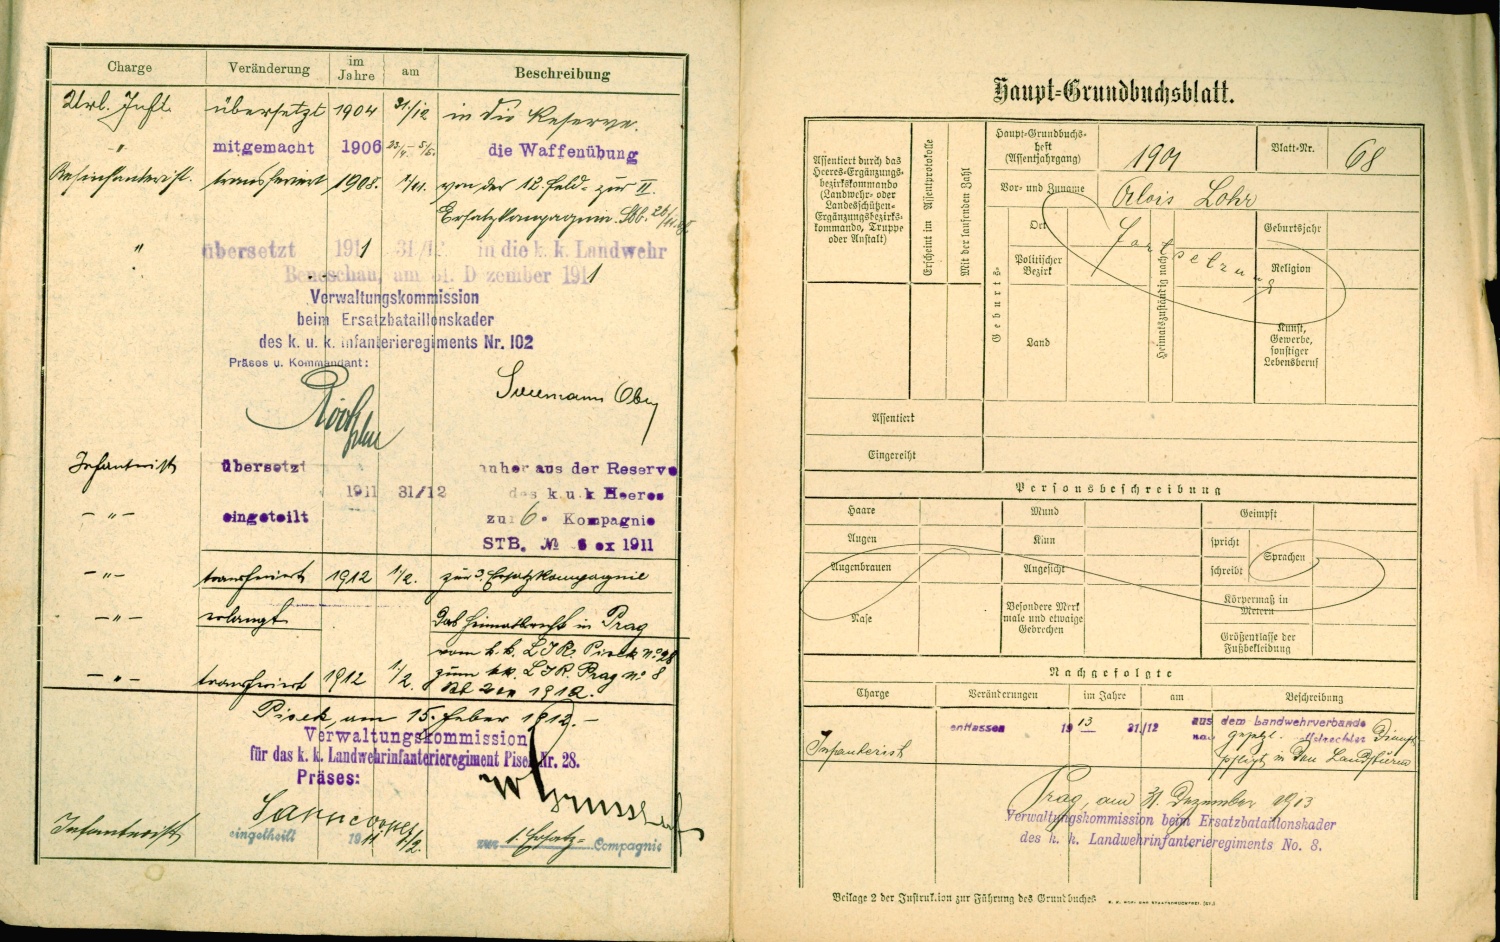 Charge Veränderung im Jahre am Beschreibung
Url. Inft. übersetzt 1904 31/12 in die Reserve.
" mitgemacht 1906 die Waffenübung
transferiert 1908. von der 12. Feld- zur II.
Ersatzkompagnie.
" übersetzt 1911 31/12 in die k. k. Landwehr
Beneschau, am 31. Dezember 1911
Verwaltungskommission
beim Ersatzbataillonskader
des k. u. k. Infanterieregiments Nr. 102
Präses u. Kommandant:
Infanterist übersetzt anher aus der Reserve
1911 31/12 des k u k Heeres
– " – eingeteilt zur 6. Kompagnie
STB. № 6 ex 1911
– " – transferiert 1912 1/2. zur 3. Ersatzkompagnie
– " – erlangt das Heimatrecht in Prag
vom k. k. LIR. Pisek No 28
– " – transferiert 1912 1/2. zum kk. LIR. Prag No 8
1912.
Pisek, am 15. Feber 1912. –
Verwaltungskommission
für das k. k. Landwehrinfanterieregiment Pisek Nr. 28.
Präses:
Infanterist eingetheilt 1911 zur 1. Ersatz- Compagnie
Haupt-Grundbuchsblatt.
Assentiert durch das Heeres-Ergänzungs-bezirkskommando (Landwehr- oder Landesschützen-Ergänzungsbezirks-kommando, Truppe oder Anstalt)
Erscheint im Assentprotokolle
Mit der laufenden Zahl
Haupt-Grundbuchs-heft (Assentjahrgang) 1901 Blatt-Nr. 68
Vor- und Zuname Alois Lohr
Geburts-
Ort
Politischer Bezirk
Land
Heimatszuständig nach
Fortsetzung
Geburtsjahr
Religion
Kunst, Gewerbe, sonstiger Lebensberuf
Assentiert
Eingereiht
Personsbeschreibung
Haare Mund Geimpft
Augen Kinn spricht Sprachen
Augenbrauen Angesicht schreibt
Nase Besondere Merkmale und etwaige Gebrechen Körpermaß in Metern
Größenklasse der Fußbekleidung
Nachgefolgte
Charge Veränderungen im Jahre am Beschreibung
Infanterist entlassen 1913 31/12 aus dem Landwehrverbande
nach gesetzl. vollstreckter Dienst-
pflicht in den Landsturm
Prag, am 31. Dezember 1913
Verwaltungskommission beim Ersatzbataillonskader
des k. k. Landwehrinfanterieregiments No. 8.
Beilage 2 der Instruktion zur Führung des Grundbuches